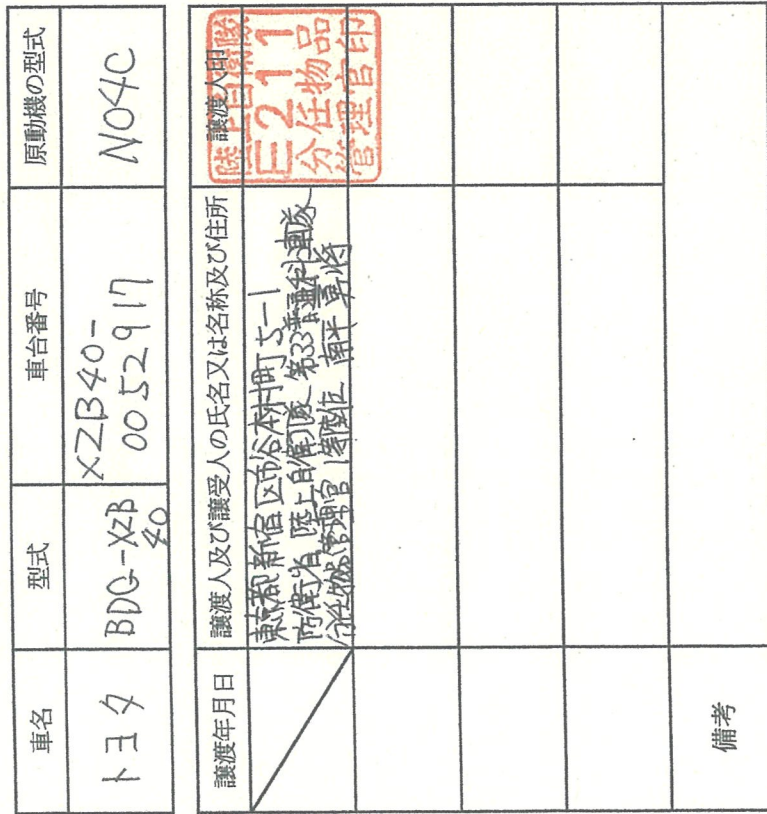 車名
型式
車台番号
原動機の型式
トヨタ
BDG-XZB
40
XZB40-
0052917
N04C
譲渡年月日
譲渡人及び譲受人の氏名又は名称及び住所
譲渡人印
東京都新宿区市谷本村町5-1
防衛省 陸上自衛隊 第33普通科連隊
分任物品管理官 1等陸位 南平 勇将
陸上自衛隊
E211
分任物品
管理官印
備考